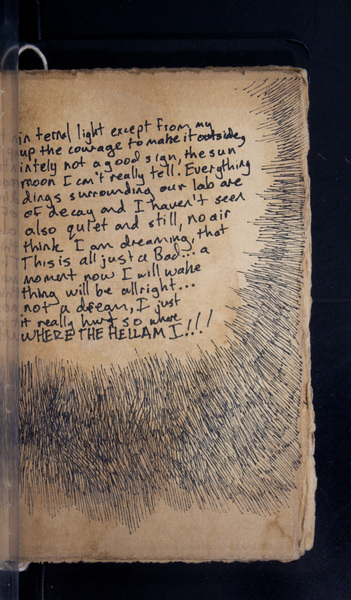 in ternal light except from my
up the courage to make it outside,
intely not a good sign, the sun
moon I can't really tell. Everything
dings surrounding our lab are
of decay and I haven't seen
also quiet and still, no air
think I am dreaming, that
This is all just a Bad... a
moment now I will wake
thing will be allright...
not a dream, I just
it really hurt so where
WHERE THE HELL AM I!!!